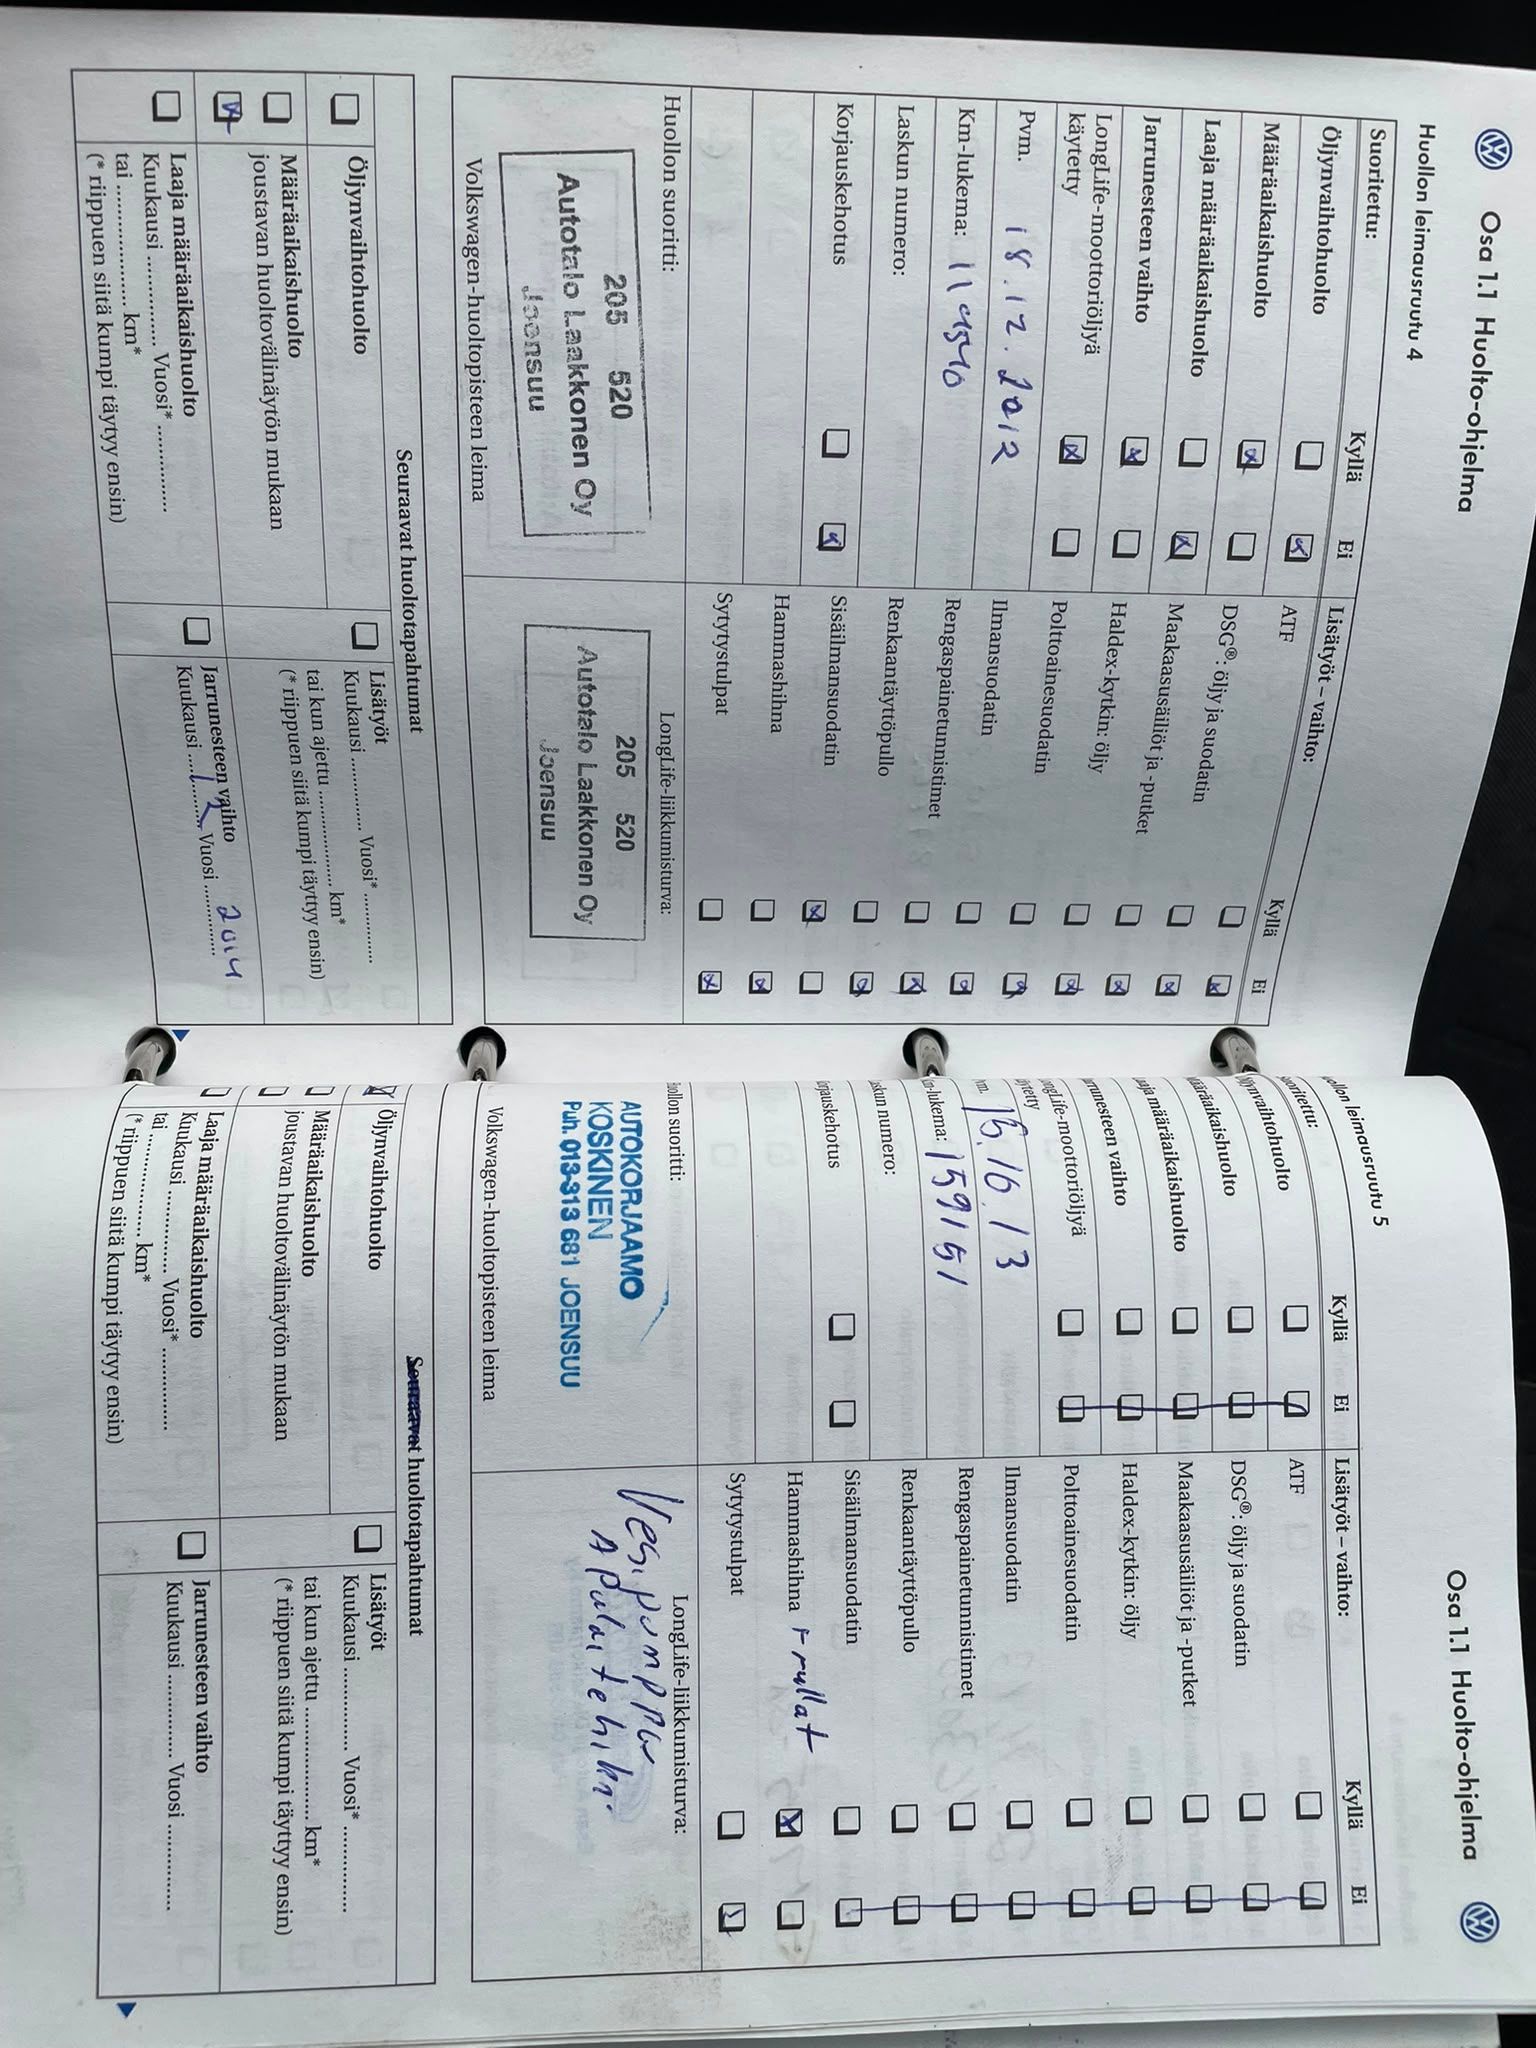 Osa 1.1 Huolto-ohjelma
Huollon leimausruutu 4
Suoritettu: Kyllä Ei
Öljynvaihtohuolto
Määräaikaishuolto
Laaja määräaikaishuolto
Jarrunesteen vaihto
LongLife-moottoriöljyä
käytetty
Pvm. 18.12.2012
Km-lukema:
Laskun numero:
Korjauskehotus
Lisätyöt – vaihto: Kyllä Ei
ATF
DSG®: öljy ja suodatin
Maakaasusäiliöt ja -putket
Haldex-kytkin: öljy
Polttoainesuodatin
Ilmansuodatin
Rengaspainetunnistimet
Renkaantäyttöpullo
Sisäilmansuodatin
Hammashihna
Sytytystulpat
Huollon suoritti:
205 520
Autotalo Laakkonen Oy
Joensuu
Volkswagen-huoltopisteen leima
LongLife-liikkumisturva:
205 520
Autotalo Laakkonen Oy
Joensuu
Seuraavat huoltotapahtumat
Öljynvaihtohuolto
Määräaikaishuolto
joustavan huoltovälinäytön mukaan
Laaja määräaikaishuolto
Kuukausi .............. Vuosi* ..............
tai .................... km*
(* riippuen siitä kumpi täytyy ensin)
Lisätyöt
Kuukausi .............. Vuosi* ..............
tai kun ajettu .................... km*
(* riippuen siitä kumpi täyttyy ensin)
Jarrunesteen vaihto
Kuukausi ....12.... Vuosi ....2014....
Osa 1.1 Huolto-ohjelma
ollon leimausruutu 5
uoritettu: Kyllä Ei
ljynvaihtohuolto
ääräaikaishuolto
aaja määräaikaishuolto
arrunesteen vaihto
ongLife-moottoriöljyä
äytetty
vm. 15.10.13
m-lukema: 159151
askun numero:
orjauskehotus
Lisätyöt – vaihto: Kyllä Ei
ATF
DSG®: öljy ja suodatin
Maakaasusäiliöt ja -putket
Haldex-kytkin: öljy
Polttoainesuodatin
Ilmansuodatin
Rengaspainetunnistimet
Renkaantäyttöpullo
Sisäilmansuodatin
Hammashihna + rullat
Sytytystulpat
uollon suoritti:
AUTOKORJAAMO
KOSKINEN
Puh. 013-313 681 JOENSUU
Volkswagen-huoltopisteen leima
LongLife-liikkumisturva:
Vesipumppu
Seuraavat huoltotapahtumat
Öljynvaihtohuolto
Määräaikaishuolto
joustavan huoltovälinäytön mukaan
Laaja määräaikaishuolto
Kuukausi .............. Vuosi* ..............
tai .................... km*
(* riippuen siitä kumpi täytyy ensin)
Lisätyöt
Kuukausi .............. Vuosi* ..............
tai kun ajettu .................... km*
(* riippuen siitä kumpi täyttyy ensin)
Jarrunesteen vaihto
Kuukausi .............. Vuosi ..............